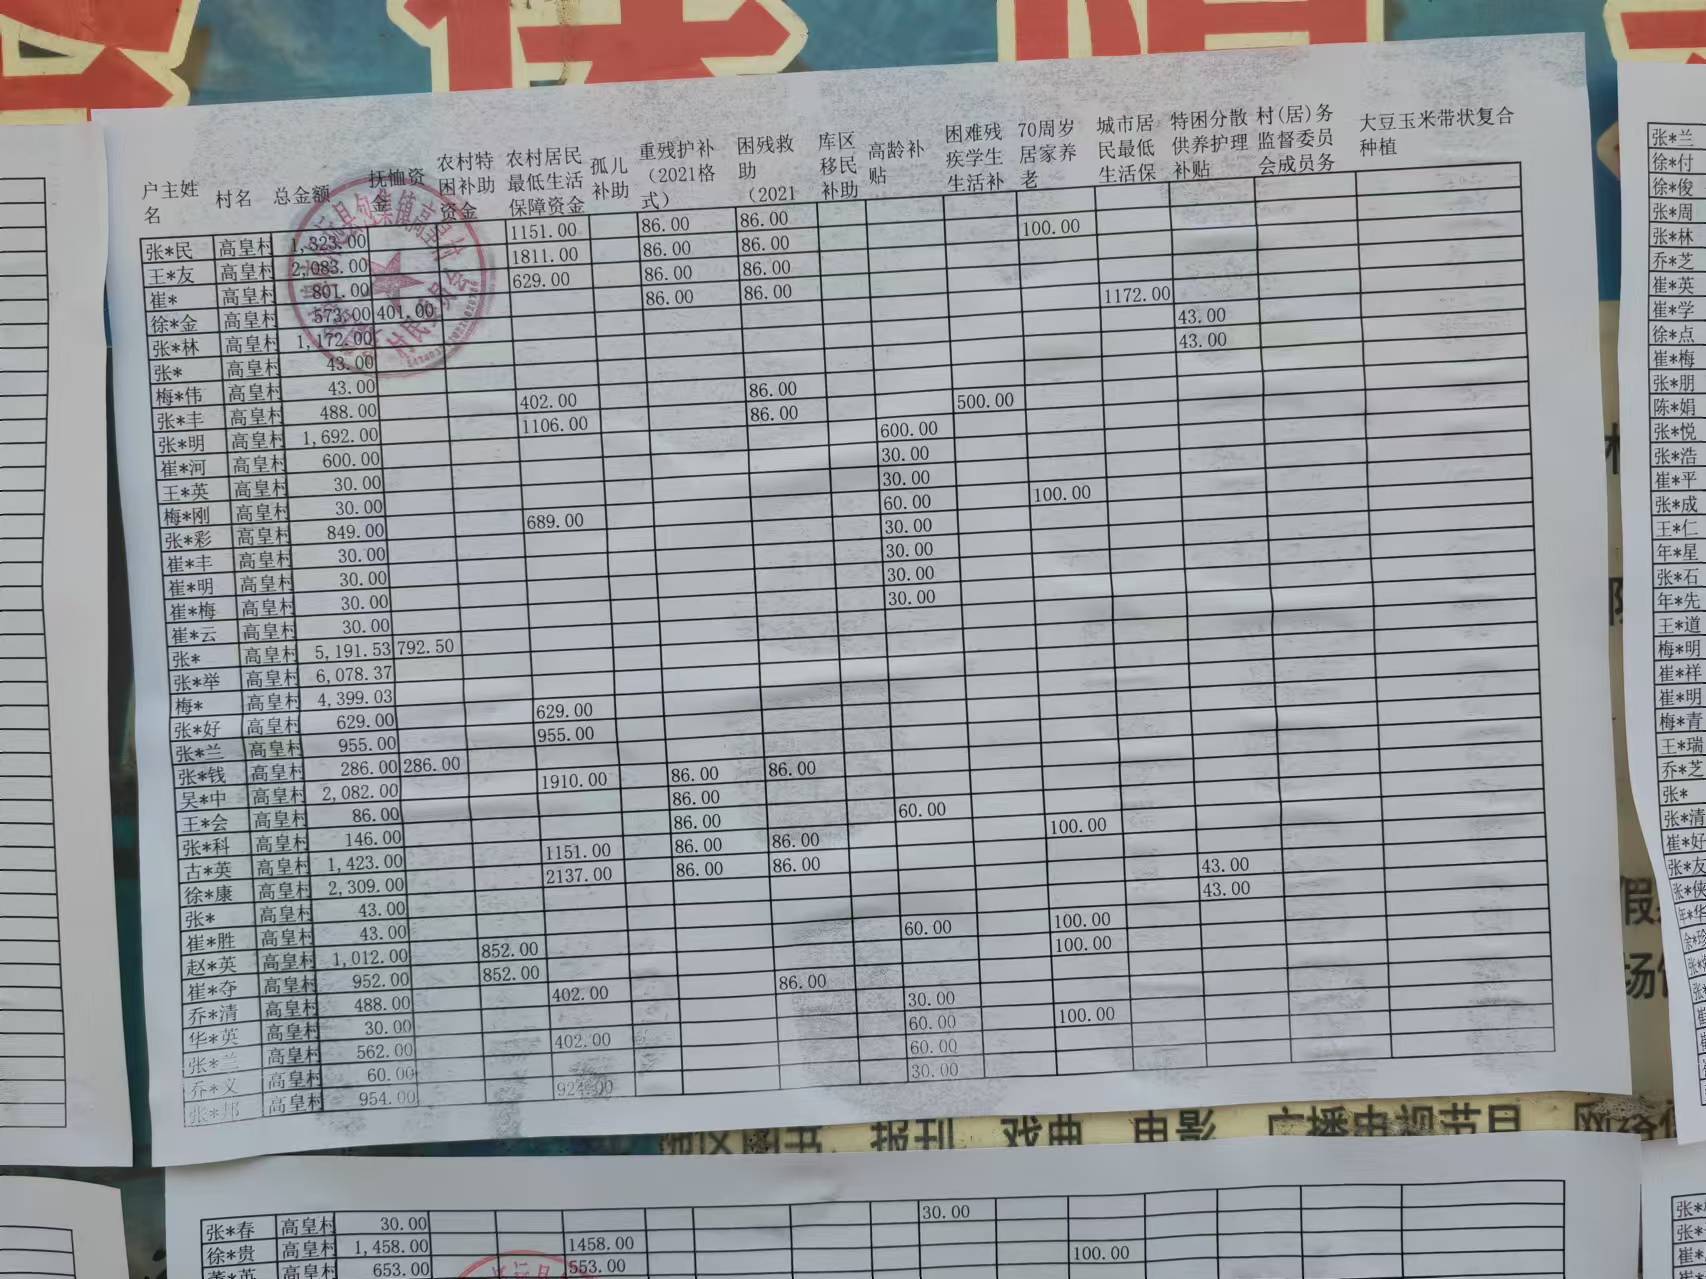 户主姓名 村名 总金额 抚恤资金 农村特困补助资金 农村居民最低生活保障资金 孤儿补助 重残护补（2021格式） 困残救助（2021 库区移民补助 高龄补贴 困难残疾学生生活补 70周岁居家养老 城市居民最低生活保 特困分散供养护理补贴 村(居)务监督委员会成员务 大豆玉米带状复合种植
张*民 高皇村 1,323.00 1151.00 86.00 86.00
王*友 高皇村 2,083.00 1811.00 86.00 86.00 100.00
崔* 高皇村 801.00 629.00 86.00 86.00
徐*金 高皇村 573.00 401.00 86.00 86.00
张*林 高皇村 1,172.00 1172.00
张* 高皇村 43.00 43.00
梅*伟 高皇村 43.00 43.00
张*丰 高皇村 488.00 402.00 86.00
张*明 高皇村 1,692.00 1106.00 86.00 500.00
崔*河 高皇村 600.00 600.00
王*英 高皇村 30.00 30.00
梅*刚 高皇村 30.00 30.00
张*彩 高皇村 849.00 689.00 60.00 100.00
崔*丰 高皇村 30.00 30.00
崔*明 高皇村 30.00 30.00
崔*梅 高皇村 30.00 30.00
崔*云 高皇村 30.00 30.00
张* 高皇村 5,191.53 792.50
张*举 高皇村 6,078.37
梅* 高皇村 4,399.03
张*好 高皇村 629.00 629.00
张*兰 高皇村 955.00 955.00
张*钱 高皇村 286.00 286.00
吴*中 高皇村 2,082.00 1910.00 86.00 86.00
王*会 高皇村 86.00 86.00
张*科 高皇村 146.00 86.00 60.00
古*英 高皇村 1,423.00 1151.00 86.00 86.00 100.00
徐*康 高皇村 2,309.00 2137.00 86.00 86.00
张* 高皇村 43.00 43.00
崔*胜 高皇村 43.00 43.00
赵*英 高皇村 1,012.00 852.00 60.00 100.00
崔*夺 高皇村 952.00 852.00 100.00
乔*清 高皇村 488.00 402.00 86.00
华*英 高皇村 30.00 30.00
张*兰 高皇村 562.00 402.00 60.00 100.00
乔*义 高皇村 60.00 60.00
张*邦 高皇村 954.00 924.00 30.00
报刊 戏曲 电影 广播电视节目
张*春 高皇村 30.00 30.00
徐*贵 高皇村 1,458.00 1458.00
高皇村 653.00 553.00 100.00
张*兰
徐*付
徐*俊
张*周
张*林
乔*芝
崔*英
崔*学
徐*点
崔*梅
张*朋
陈*娟
张*悦
张*浩
崔*平
张*成
王*仁
年*星
张*石
年*先
王*道
梅*明
崔*祥
崔*明
梅*青
王*瑞
乔*芝
张*
张*清
崔*好
张*友
张*侠
年*华